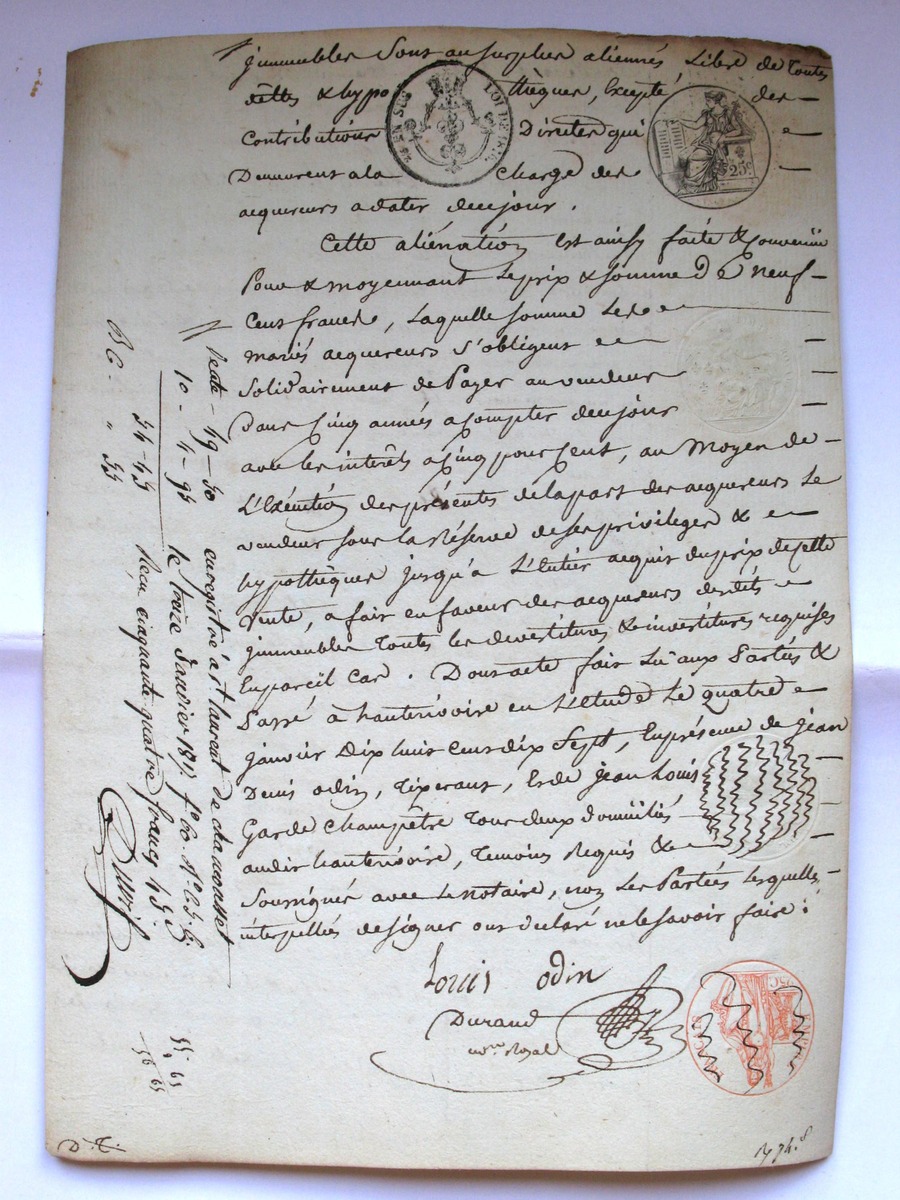 jmmeubles Sont au surplus aliennés Libre de Toutes
dettes & hypothèques, Excepté des
Contributions Directes qui
Demeurent a la charge des
acquereurs a dater de ce jour.
Cette aliénation est ainsy faite & Convenüe
Pour & moyennant Le prix & somme De neuf
Cent francs, Laquelle somme Les
mariés acquereurs s'obligent
Solidairement de Payer au vendeur
Dans Cinq années a Compter de ce jour
avec les intérêts a Cinq pour Cent, au Moyen de
L'Exécution des présentes de la part des acquereurs Le
vendeur sous la Réserve de ses privileges &
hypothèques jusqu'a L'Entier acquit du prix de cette
Vente, a fait en faveur des acquereurs desdits
jmmeubles Toutes les devestitures & investitures requises
En pareil Cas. Dont acte fait Lu aux Parties &
Passé à hauterivoire en L'Etude Le quatre
janvier Dix huit cent dix Sept, En présence de jean
Denis odin, Tixerant, & de jean Louis
Garde Champêtre Tous deux Domiciliés
audit hauterivoire, Temoins Requis &
Soussignés avec Le notaire, non Les Parties Lesquelles
interpellés de signer ont declaré ne le savoir faire.
Louis odin
Durand
not.re Royal
25 c
Vente - 49-50
10 - 4-95
54-45
enregistré à St. laurent de chamousset
le treize Janvier 1817.
Recu cinquante quatre francs 45 c.
D. T.